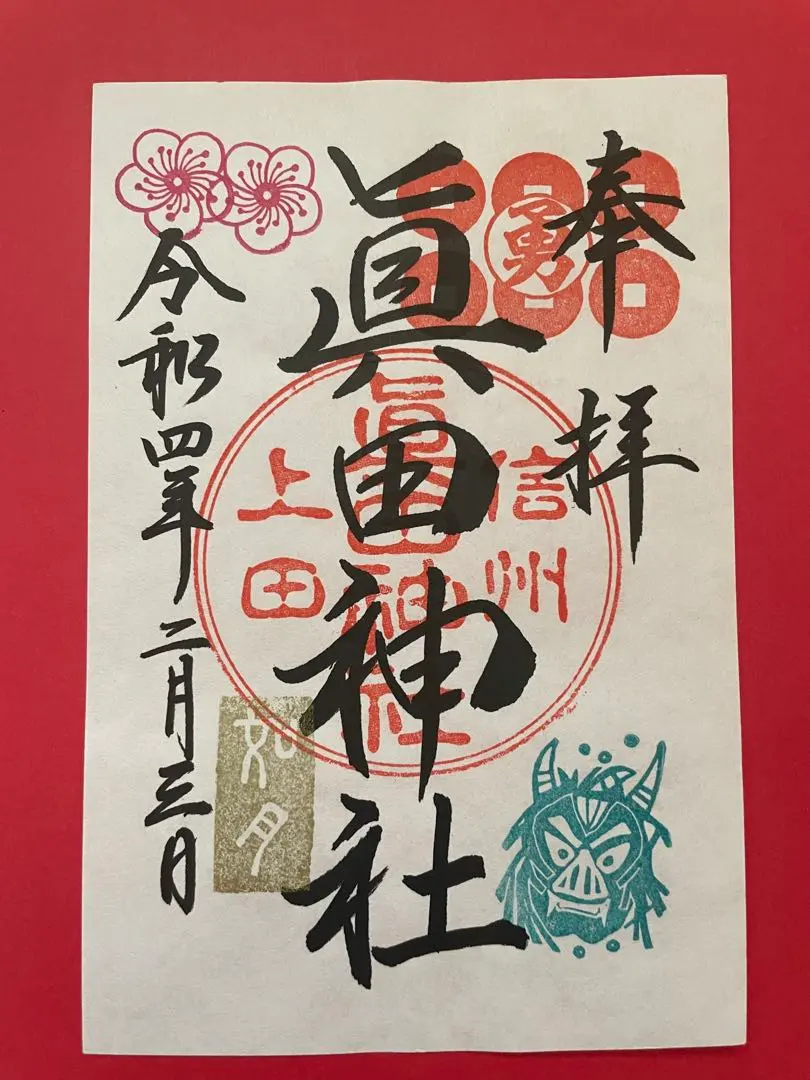 奉拝
勇
眞田神社
信州
眞田神社
上田
令和四年二月三日
如月